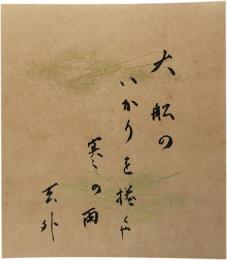 大船の
いかりを捲くや
寒の雨